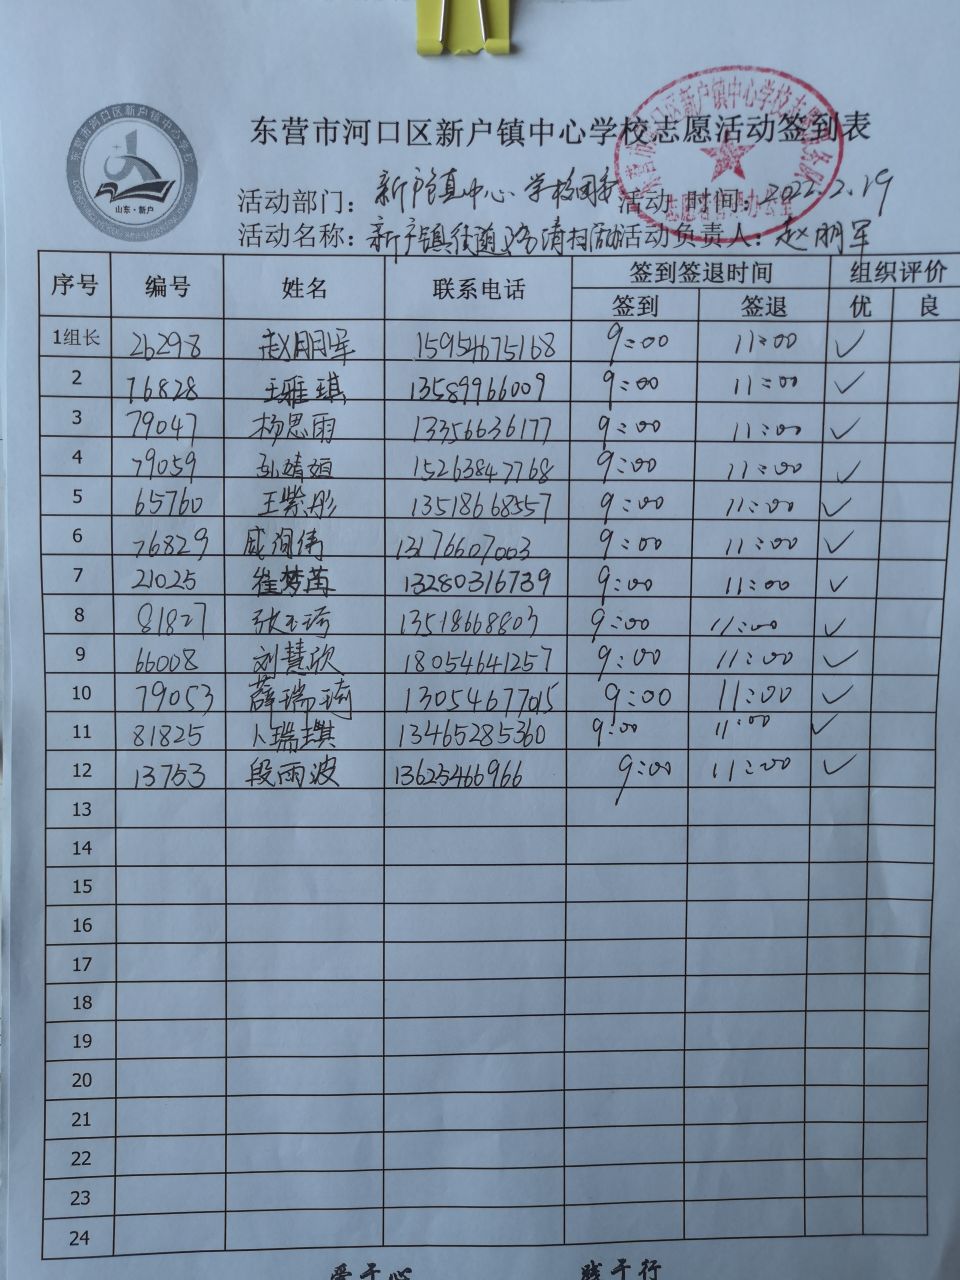 东营市河口区新户镇中心学校志愿活动签到表
活动部门：新户镇中心学校团委 活动时间：2022.2.19
活动名称：新户镇街道路清扫活动 活动负责人：赵朋军
序号 编号 姓名 联系电话 签到签退时间 组织评价
签到 签退 优 良
1组长 26298 赵朋军 15954675168 9:00 11:00 ✓
2 76828 王雅琪 13589966009 9:00 11:00 ✓
3 79047 杨思雨 13356636177 9:00 11:00 ✓
4 79059 15263847768 9:00 11:00 ✓
5 65760 王紫彤 13518668557 9:00 11:00 ✓
6 76829 13176607003 9:00 11:00 ✓
7 21025 崔梦茜 13280316739 9:00 11:00 ✓
8 81827 张玉琦 13518668803 9:00 11:00 ✓
9 66008 刘慧欣 18054641257 9:00 11:00 ✓
10 79053 薛瑞琦 13054677015 9:00 11:00 ✓
11 81825 卜瑞琪 13465285360 9:00 11:00 ✓
12 13753 段雨波 13625466966 9:00 11:00 ✓
13
14
15
16
17
18
19
20
21
22
23
24
爱于心 践于行
东营市河口区新户镇中心学校
山东·新户